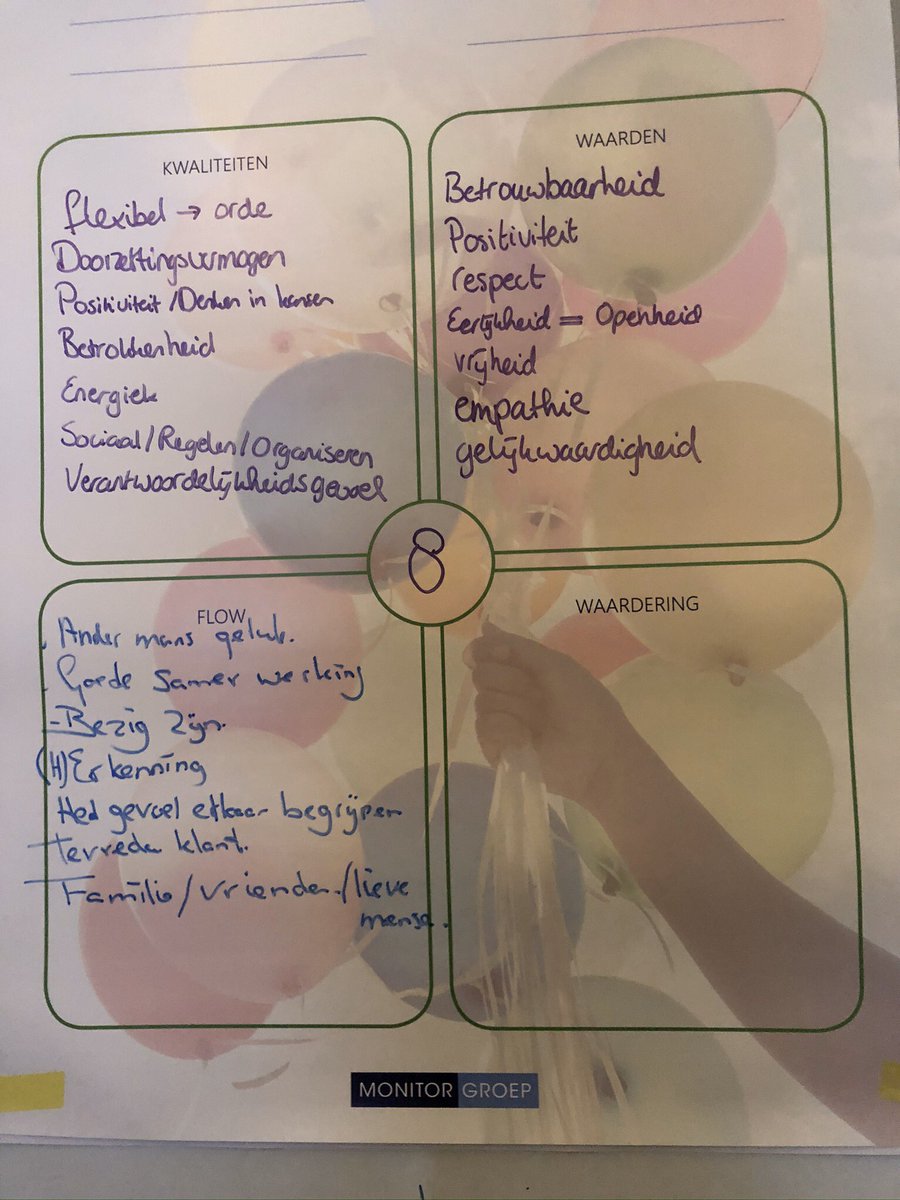 KWALITEITEN
flexibel → orde
Doorzettingsvermogen
Positiviteit / Denken in kansen
Betrokkenheid
Energiek
Sociaal / Regelen / Organiseren
Verantwoordelijkheidsgevoel
WAARDEN
Betrouwbaarheid
Positiviteit
respect
Eerlijkheid = Openheid
vrijheid
empathie
gelijkwaardigheid
8
FLOW
Ander mans geluk.
Goede Samen werking
- Bezig zijn.
(H)Erkenning
Het gevoel elkaar begrijpen
Tevreden klant.
Familie / vrienden / lieve
mense.
WAARDERING
MONITOR GROEP